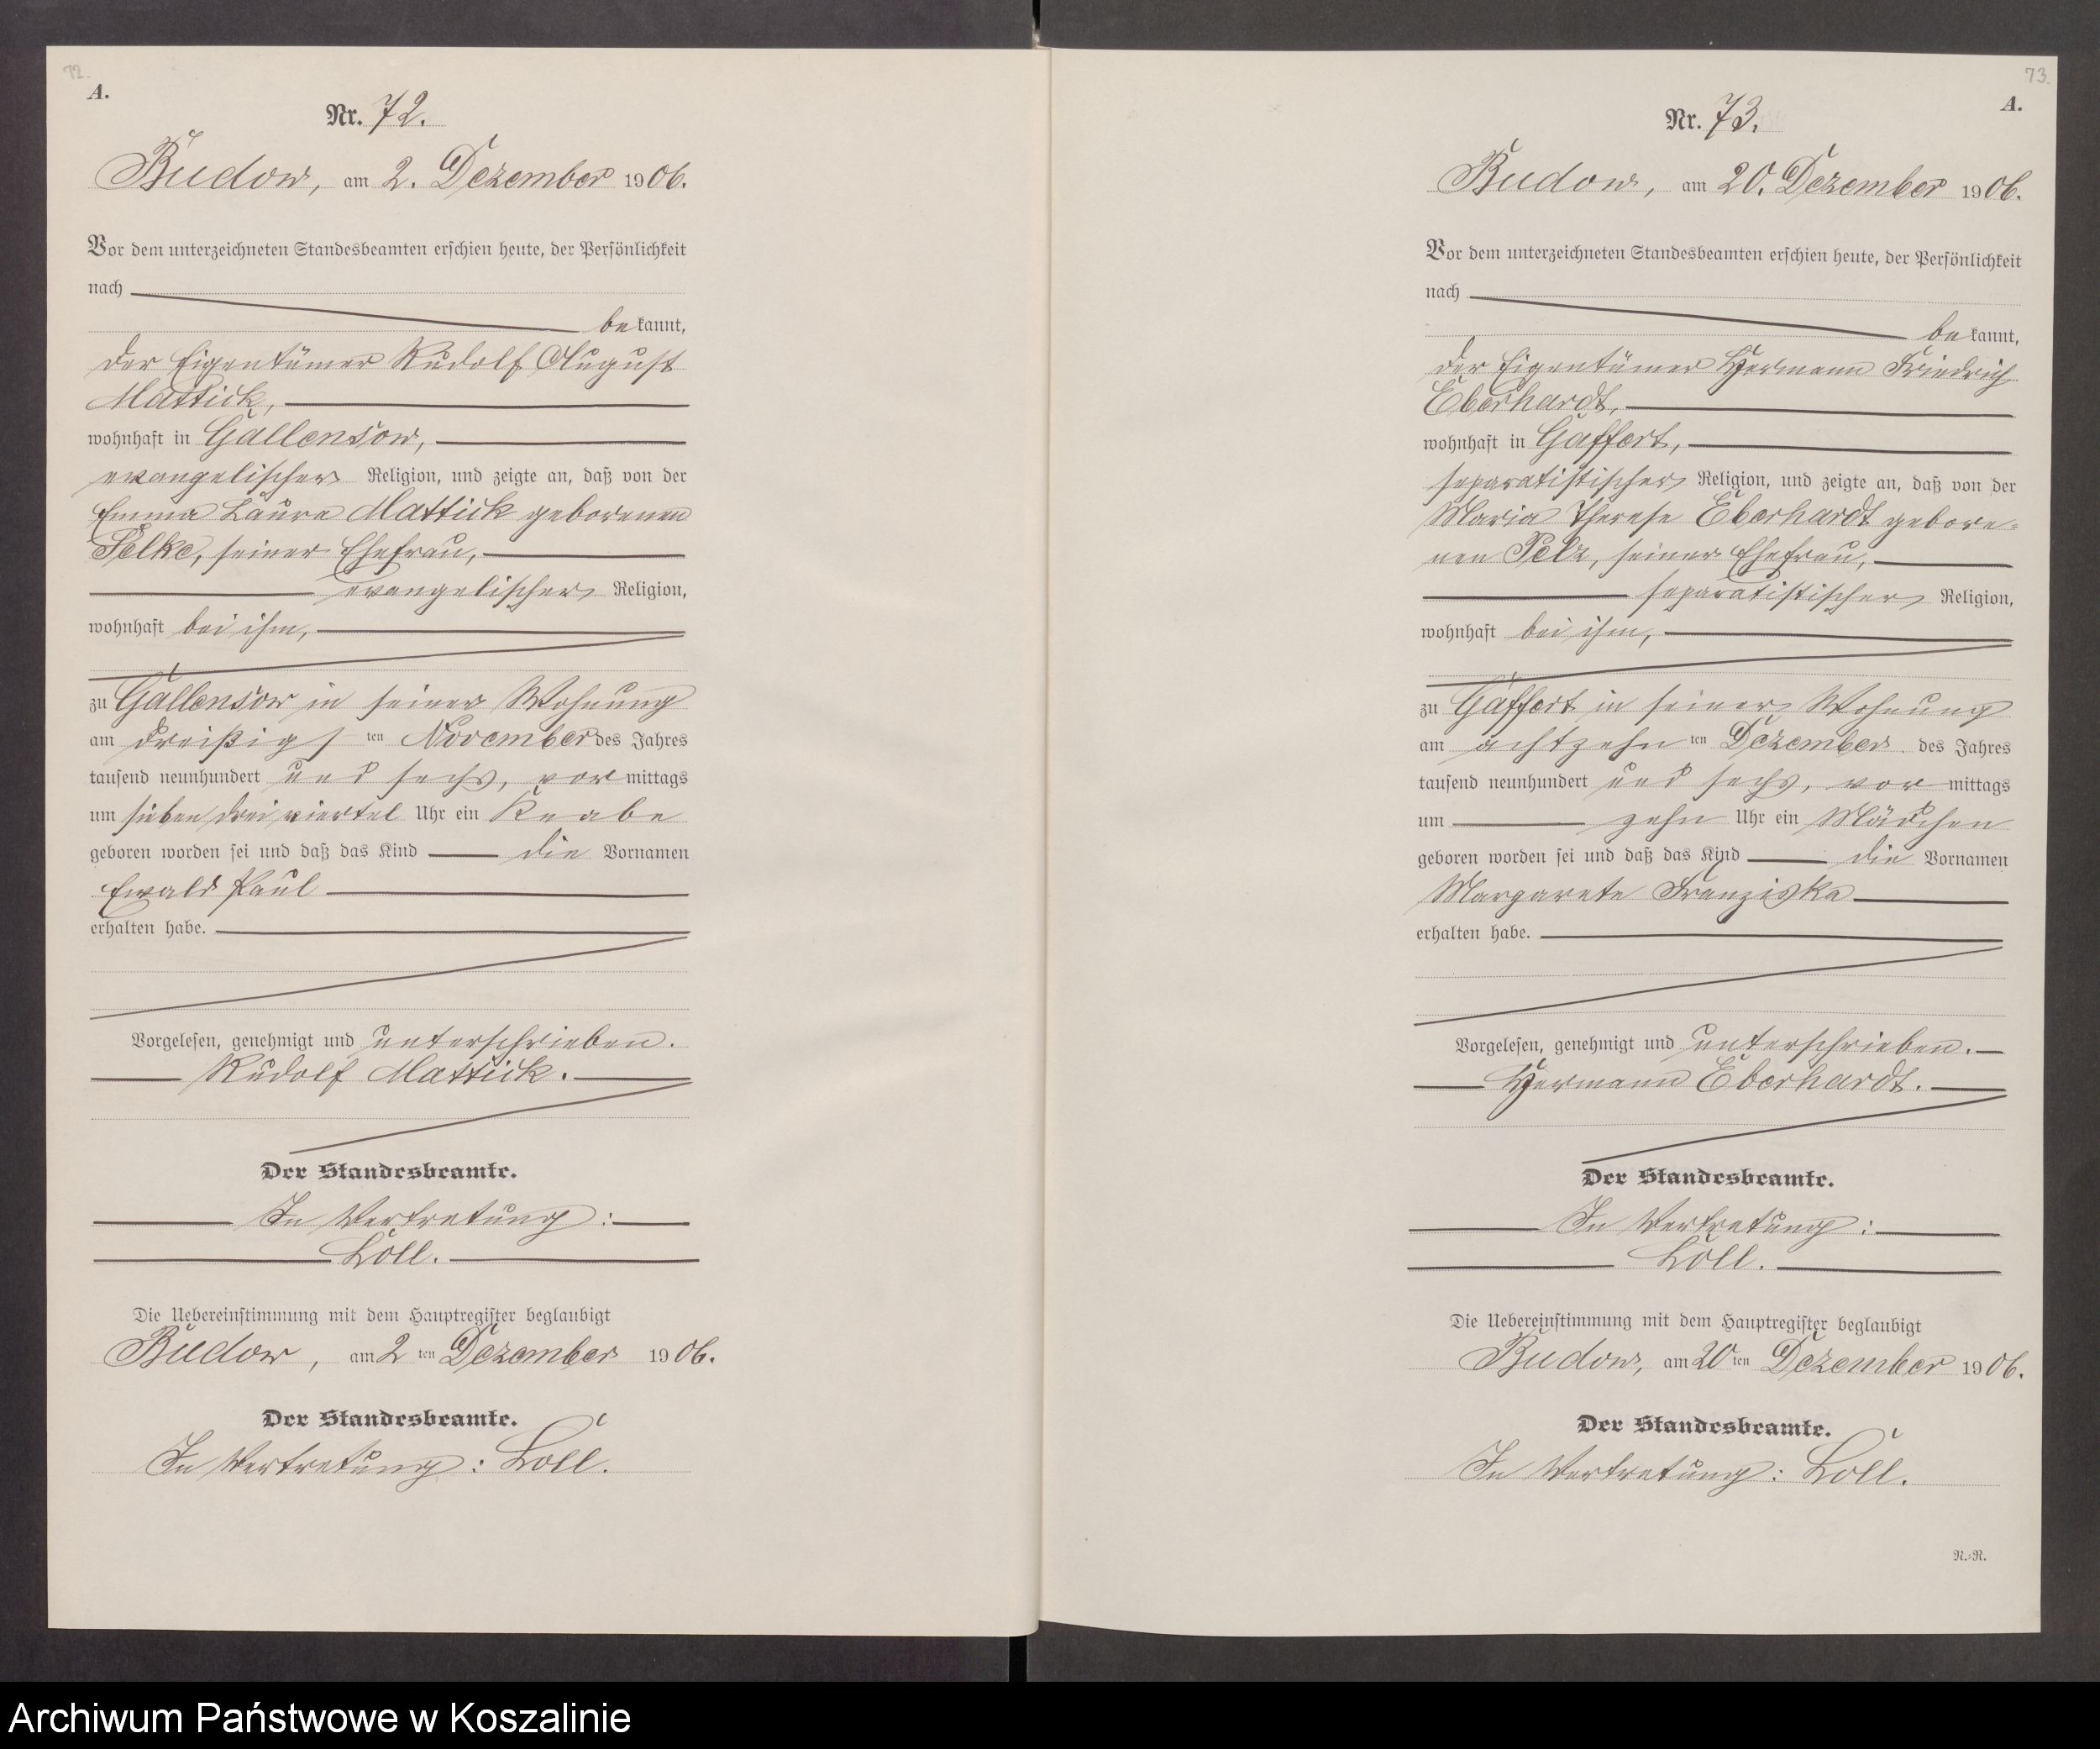 72.
A.
Nr. 72.
Budow, am 2. Dezember 1906.
Vor dem unterzeichneten Standesbeamten erschien heute, der Persönlichkeit
nach
bekannt,
der Eigentümer Rudolf August
Mattick,
wohnhaft in Gallensow,
evangelischer Religion, und zeigte an, daß von der
Emma Laura Mattick geborenen
Selke, seiner Ehefrau,
evangelischer Religion,
wohnhaft bei ihm,
zu Gallensow in seiner Wohnung
am dreißigsten November des Jahres
tausend neunhundert und sechs, vormittags
um sieben drei viertel Uhr ein Knabe
geboren worden sei und daß das Kind die Vornamen
Ewald Paul
erhalten habe.
Vorgelesen, genehmigt und unterschrieben.
Rudolf Mattick.
Der Standesbeamte.
In Vertretung:
Loll.
Die Uebereinstimmung mit dem Hauptregister beglaubigt
Budow, am 2ten Dezember 1906.
Der Standesbeamte.
In Vertretung: Loll.
73.
A.
Nr. 73.
Budow, am 20. Dezember 1906.
Vor dem unterzeichneten Standesbeamten erschien heute, der Persönlichkeit
nach
bekannt,
der Eigentümer Hermann Friedrich
Eberhardt,
wohnhaft in Gaffert,
separatistischer Religion, und zeigte an, daß von der
Maria Therese Eberhardt gebore-
nen Pelz, seiner Ehefrau,
separatistischer Religion,
wohnhaft bei ihm,
zu Gaffert in seiner Wohnung
am achtzehnten Dezember des Jahres
tausend neunhundert und sechs, vormittags
um zehn Uhr ein Mädchen
geboren worden sei und daß das Kind die Vornamen
Margarete Franziska
erhalten habe.
Vorgelesen, genehmigt und unterschrieben.
Hermann Eberhardt.
Der Standesbeamte.
In Vertretung:
Loll.
Die Uebereinstimmung mit dem Hauptregister beglaubigt
Budow, am 20ten Dezember 1906.
Der Standesbeamte.
In Vertretung: Loll.
N.=N.
Archiwum Państwowe w Koszalinie